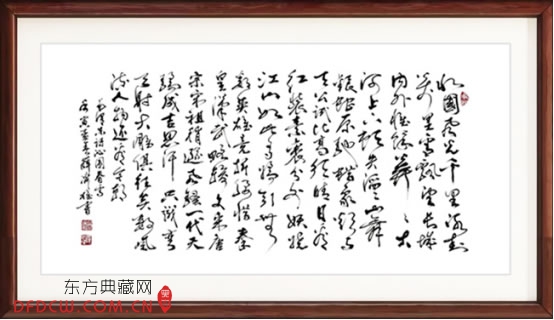 北國风光千里冰封
万里雪飘望长城
内外惟余莽々大
河上下顿失滔々山舞
银蛇原驰蜡象欲与
天公试比高须晴日看
红装素裹分外妖娆
江山如此多娇引无
数英雄竞折腰惜秦
皇汉武略输文采唐
宗宋祖稍逊风骚一代天
骄成吉思汗只识弯
弓射大雕俱往矣数风
流人物还看今朝
毛泽东诗沁园春雪
庚寅孟春薛
书
东方典藏网
DFDCW.COM.CN